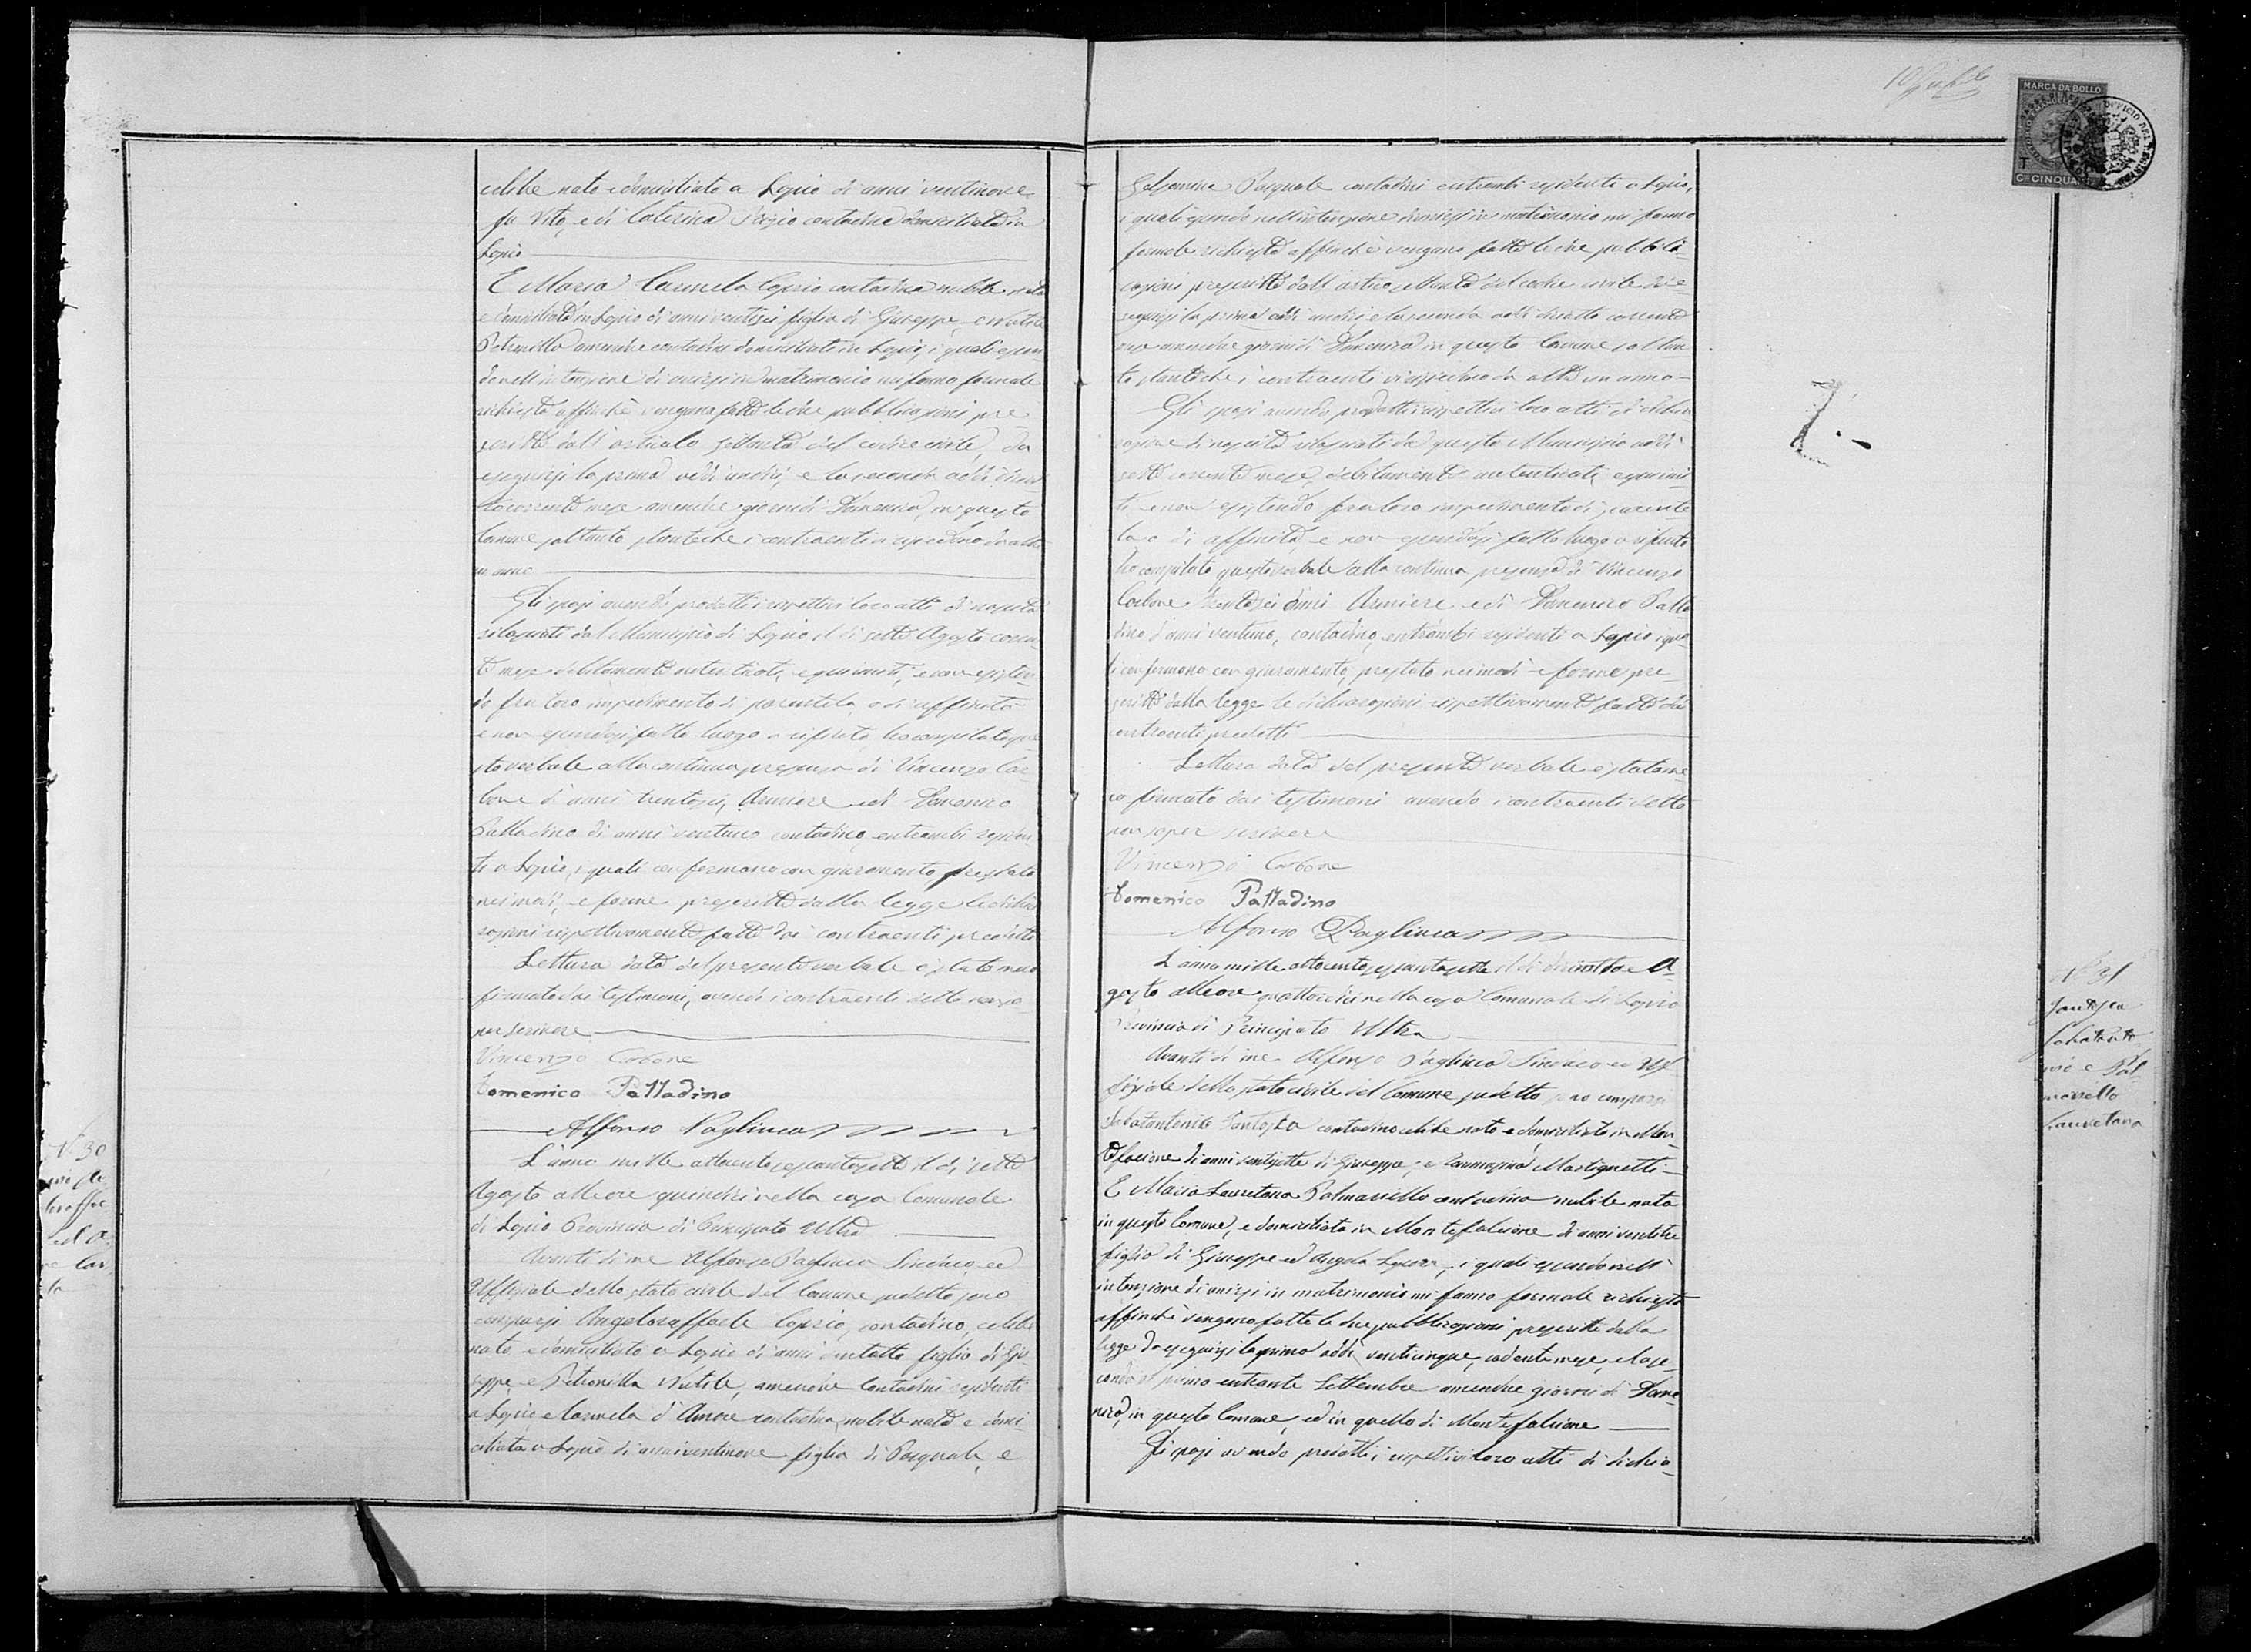 celibe nato e domiciliato a Lapio di anni ventinove
fu Vito, e di Caterina contadina domiciliata in
Lapio
E Maria Carmela Caprio contadina nubile nata
e domiciliata in Lapio di anni ventisei figlia di Giuseppe, e
Petronilla amendue contadini domiciliati in Lapio, i quali essen
do nell'intenzione di unirsi in matrimonio mi fanno formale
richiesta affinchè vengano fatte le due pubblicazioni pre
scritte dall'articolo settanta del codice civile, da
eseguirsi la prima addì undici, e la seconda addì diciot
to corrente mese amendue giorni di Domenica, in questo
Comune soltanto stantechè i contraenti vi risiedono da oltre
un anno
Gli sposi avendo prodotti i rispettivi loro atti di nascita
rilasciati dal Municipio di Lapio il dì sette Agosto corren
te mese debitamente autenticati, esaminati, e non esisten
do fra loro impedimento di parentela, o di affinità
e non essendosi fatto luogo a rifiuto ho compilato que
sto verbale alla continua presenza di Vincenzo Car
bone di anni trentasei, Armiere, e di Domenico
Palladino di anni ventuno contadino, entrambi residen
ti a Lapio, i quali confermano con giuramento, prestato
nei modi, e forme prescritte dalla legge le dichia
razioni rispettivamente fatte dai contraenti predetti
Lettura data del presente verbale è stato meco
firmato dai testimoni, avendo i contraenti detto non sa
per scrivere
Vincenzo Carbone
Domenico Palladino
Alfonso Pagliuca
N. 30
L'anno mille ottocentosessantasette il dì sette
Agosto alle ore quindici nella casa Comunale
di Lapio Provincia di Principato Ultra
Avanti di me Alfonso Pagliuca Sindaco, ed
Uffiziale dello stato civile del Comune sudetto sono
comparsi Angeloraffaele Caprio, contadino, celibe
nato e domiciliato a Lapio di anni ventotto figlio di Giu
seppe, e Petronilla, amendue contadini residenti
a Lapio e Carmela d'Amore contadina, nubile nata e domi
ciliata a Lapio di anni ventinove figlia di Pasquale, e
MARCA DA BOLLO
Cmi CINQUANTA
Pasquale contadini entrambi residenti a Lapio,
i quali essendo nell'intenzione di unirsi in matrimonio mi fanno
formale richiesta affinchè vengano fatte le due pubbli
cazioni prescritte dall'articolo settanta del codice civile da e
seguirsi la prima addì undici e la seconda addì diciotto corrente
mese amendue giorni di Domenica in questo Comune soltan
to stantechè i contraenti vi risiedono da oltre un anno
Gli sposi avendo prodotti i rispettivi loro atti di dichia
razione di nascita rilasciati da questo Municipio addì
sette corrente mese, debitamente autenticati, esamina
ti, e non esistendo fra loro impedimento di parente
la o di affinità, e non essendosi fatto luogo a rifiuto
ho compilato questo verbale alla continua presenza di Vincenzo
Carbone trentasei anni Armiere, e di Domenico Palla
dino d'anni ventuno, contadino, entrambi residenti a Lapio i qua
li confermano con giuramento, prestato nei modi e forme pre
scritte dalla legge le dichiarazioni rispettivamente fatte dai
contraenti predetti
Lettura data del presente verbale è stato me
co firmato dai testimoni avendo i contraenti detto
non saper scrivere
Vincenzo Carbone
Domenico Palladino
Alfonso Pagliuca
N. 31
L'anno mille ottocentosessantasette il dì diciotto A
gosto alle ore quattordici nella casa Comunale di Lapio
Provincia di Principato Ultra
Avanti di me Alfonso Pagliuca Sindaco ed Uf
fiziale dello stato civile del Comune sudetto sono comparsi
Sabatantonio Santosa contadino celibe nato e domiciliato in Mon
tefalcione di anni ventisette di Giuseppe, e Martignetti
E Maria Lauretana Palmariello contadina nubile nata
in questo Comune, e domiciliata in Montefalcione di anni ventitre
figlia di Giuseppe ed Angela, i quali essendo nell'
intenzione di unirsi in matrimonio mi fanno formale richiesta
affinchè vengano fatte le due pubblicazioni prescritte dalla
legge da eseguirsi la prima addì venticinque, cadente mese, e la se
conda il primo entrante Settembre amendue giorni di Dome
nica, in questo Comune, ed in quello di Montefalcione
Gli sposi avendo prodotti i rispettivi loro atti di dichia